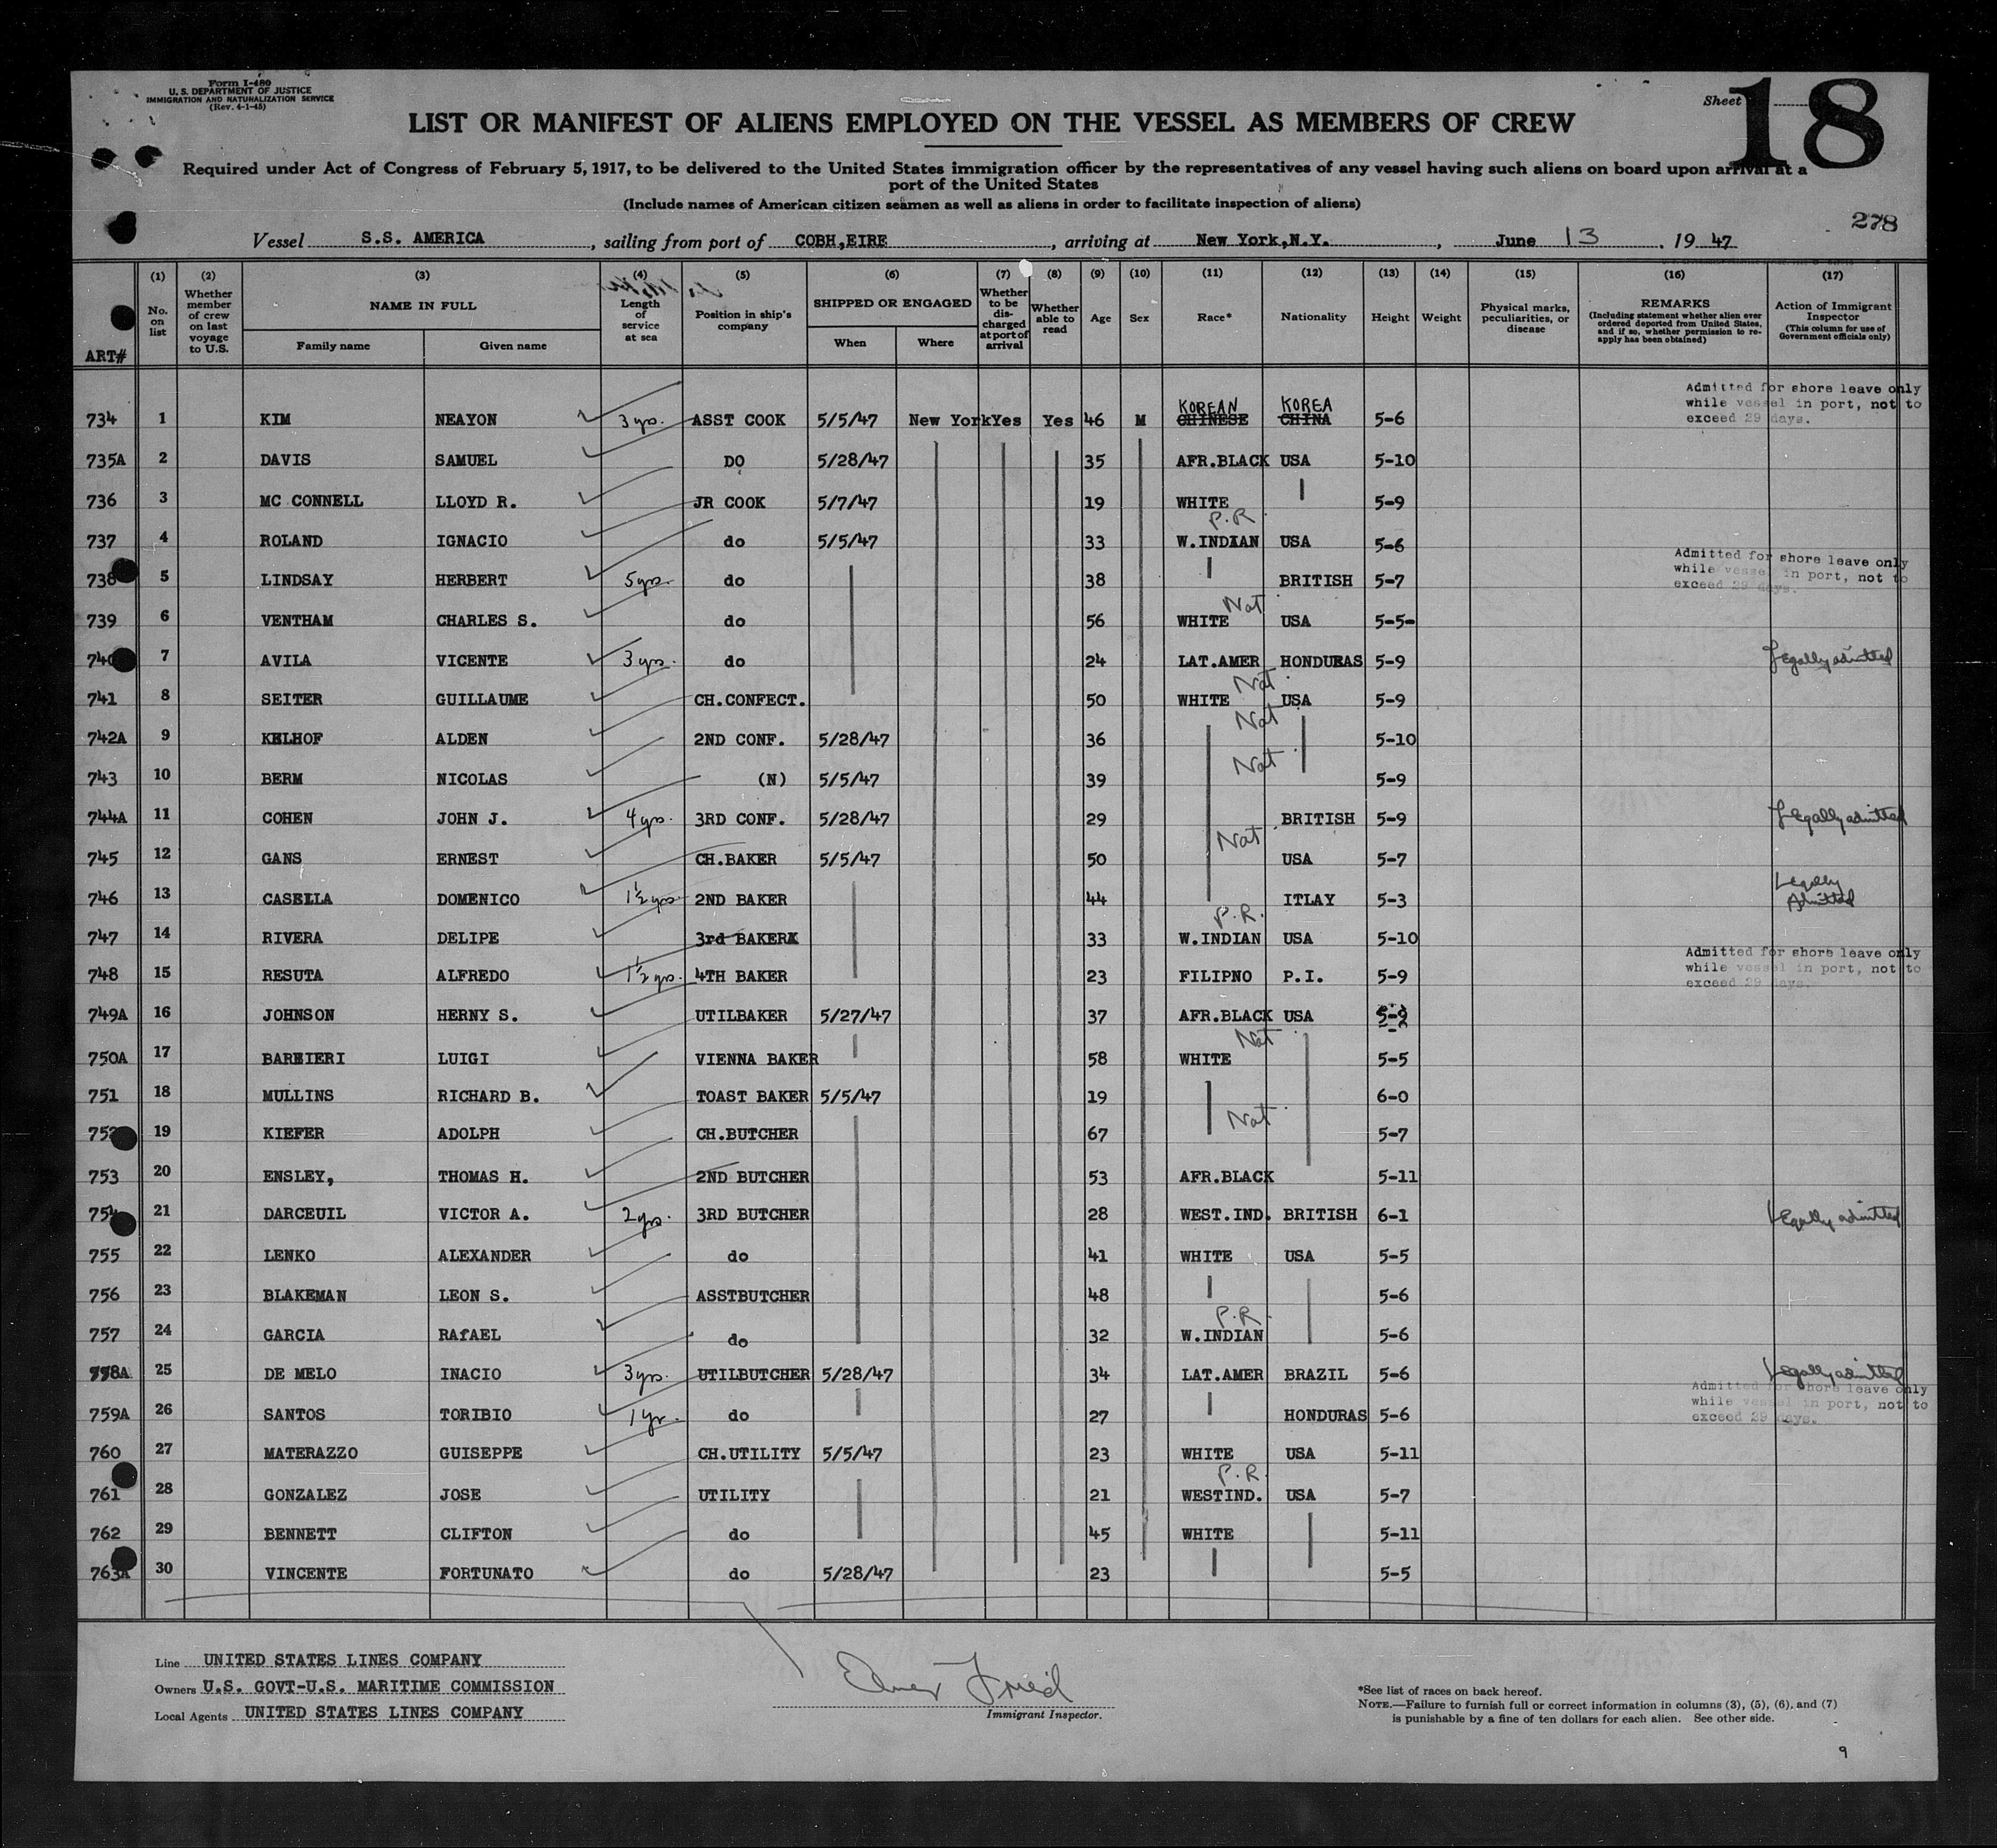 Form I-480
U. S. DEPARTMENT OF JUSTICE
IMMIGRATION AND NATURALIZATION SERVICE
(Rev. 4-1-45)
Sheet 18
LIST OR MANIFEST OF ALIENS EMPLOYED ON THE VESSEL AS MEMBERS OF CREW
Required under Act of Congress of February 5, 1917, to be delivered to the United States immigration officer by the representatives of any vessel having such aliens on board upon arrival at a
port of the United States
(Include names of American citizen seamen as well as aliens in order to facilitate inspection of aliens)
278
Vessel S.S. AMERICA, sailing from port of COBH,EIRE, arriving at New York,N.Y., June 13, 19 47
(1) (2) (3) (4) (5) (6) (7) (8) (9) (10) (11) (12) (13) (14) (15) (16) (17)
ART# No. on list Whether member of crew on last voyage to U.S. NAME IN FULL Family name Given name Length of service at sea Position in ship's company SHIPPED OR ENGAGED When Where Whether to be discharged at port of arrival Whether able to read Age Sex Race* Nationality Height Weight Physical marks, peculiarities, or disease REMARKS (Including statement whether alien ever ordered deported from United States, and if so, whether permission to reapply has been obtained) Action of Immigrant Inspector (This column for use of Government officials only)
734 1 KIM NEAYON 3 yrs. ASST COOK 5/5/47 New York Yes Yes 46 M KOREAN CHINESE KOREA CHINA 5-6 Admitted for shore leave only while vessel in port, not to exceed 29 days.
735A 2 DAVIS SAMUEL DO 5/28/47 35 AFR.BLACK USA 5-10
736 3 MC CONNELL LLOYD R. JR COOK 5/7/47 19 WHITE 5-9
737 4 ROLAND IGNACIO do 5/5/47 33 P.R. W.INDIAN USA 5-6
738 5 LINDSAY HERBERT 5 yrs. do 38 BRITISH 5-7 Admitted for shore leave only while vessel in port, not to exceed 29 days.
739 6 VENTHAM CHARLES S. do 56 WHITE Nat USA 5-5-
740 7 AVILA VICENTE 3 yrs. do 24 LAT.AMER HONDURAS 5-9 Legally admitted
741 8 SEITER GUILLAUME CH.CONFECT. 50 WHITE Nat. USA 5-9
742A 9 KELHOF ALDEN 2ND CONF. 5/28/47 36 Nat 5-10
743 10 BERM NICOLAS (N) 5/5/47 39 Nat 5-9
744A 11 COHEN JOHN J. 4 yrs. 3RD CONF. 5/28/47 29 BRITISH 5-9 Legally admitted
745 12 GANS ERNEST CH.BAKER 5/5/47 50 Nat USA 5-7
746 13 CASELLA DOMENICO 1½ yrs 2ND BAKER 44 ITLAY 5-3 Legally Admitted
747 14 RIVERA DELIPE 3rd BAKER 33 P.R. W.INDIAN USA 5-10
748 15 RESUTA ALFREDO 1½ yrs. 4TH BAKER 23 FILIPNO P.I. 5-9 Admitted for shore leave only while vessel in port, not to exceed 29 days.
749A 16 JOHNSON HERNY S. UTILBAKER 5/27/47 37 AFR.BLACK USA 5-9
750A 17 BARBIERI LUIGI VIENNA BAKER 58 WHITE Nat 5-5
751 18 MULLINS RICHARD B. TOAST BAKER 5/5/47 19 6-0
752 19 KIEFER ADOLPH CH.BUTCHER 67 Nat 5-7
753 20 ENSLEY, THOMAS H. 2ND BUTCHER 53 AFR.BLACK 5-11
754 21 DARCEUIL VICTOR A. 2 yrs. 3RD BUTCHER 28 WEST.IND. BRITISH 6-1 Legally admitted
755 22 LENKO ALEXANDER do 41 WHITE USA 5-5
756 23 BLAKEMAN LEON S. ASSTBUTCHER 48 5-6
757 24 GARCIA RAfAEL do 32 P.R. W.INDIAN 5-6
758A 25 DE MELO INACIO 3 yrs. UTILBUTCHER 5/28/47 34 LAT.AMER BRAZIL 5-6 Legally admitted
759A 26 SANTOS TORIBIO 1 yr. do 27 HONDURAS 5-6 Admitted for shore leave only while vessel in port, not to exceed 29 days.
760 27 MATERAZZO GUISEPPE CH.UTILITY 5/5/47 23 WHITE USA 5-11
761 28 GONZALEZ JOSE UTILITY 21 P.R. WESTIND. USA 5-7
762 29 BENNETT CLIFTON do 45 WHITE 5-11
763A 30 VINCENTE FORTUNATO do 5/28/47 23 5-5
Line UNITED STATES LINES COMPANY
Owners U.S. GOVT-U.S. MARITIME COMMISSION
Local Agents UNITED STATES LINES COMPANY
Elmer Fried
Immigrant Inspector.
*See list of races on back hereof.
NOTE.—Failure to furnish full or correct information in columns (3), (5), (6), and (7)
is punishable by a fine of ten dollars for each alien. See other side.
9